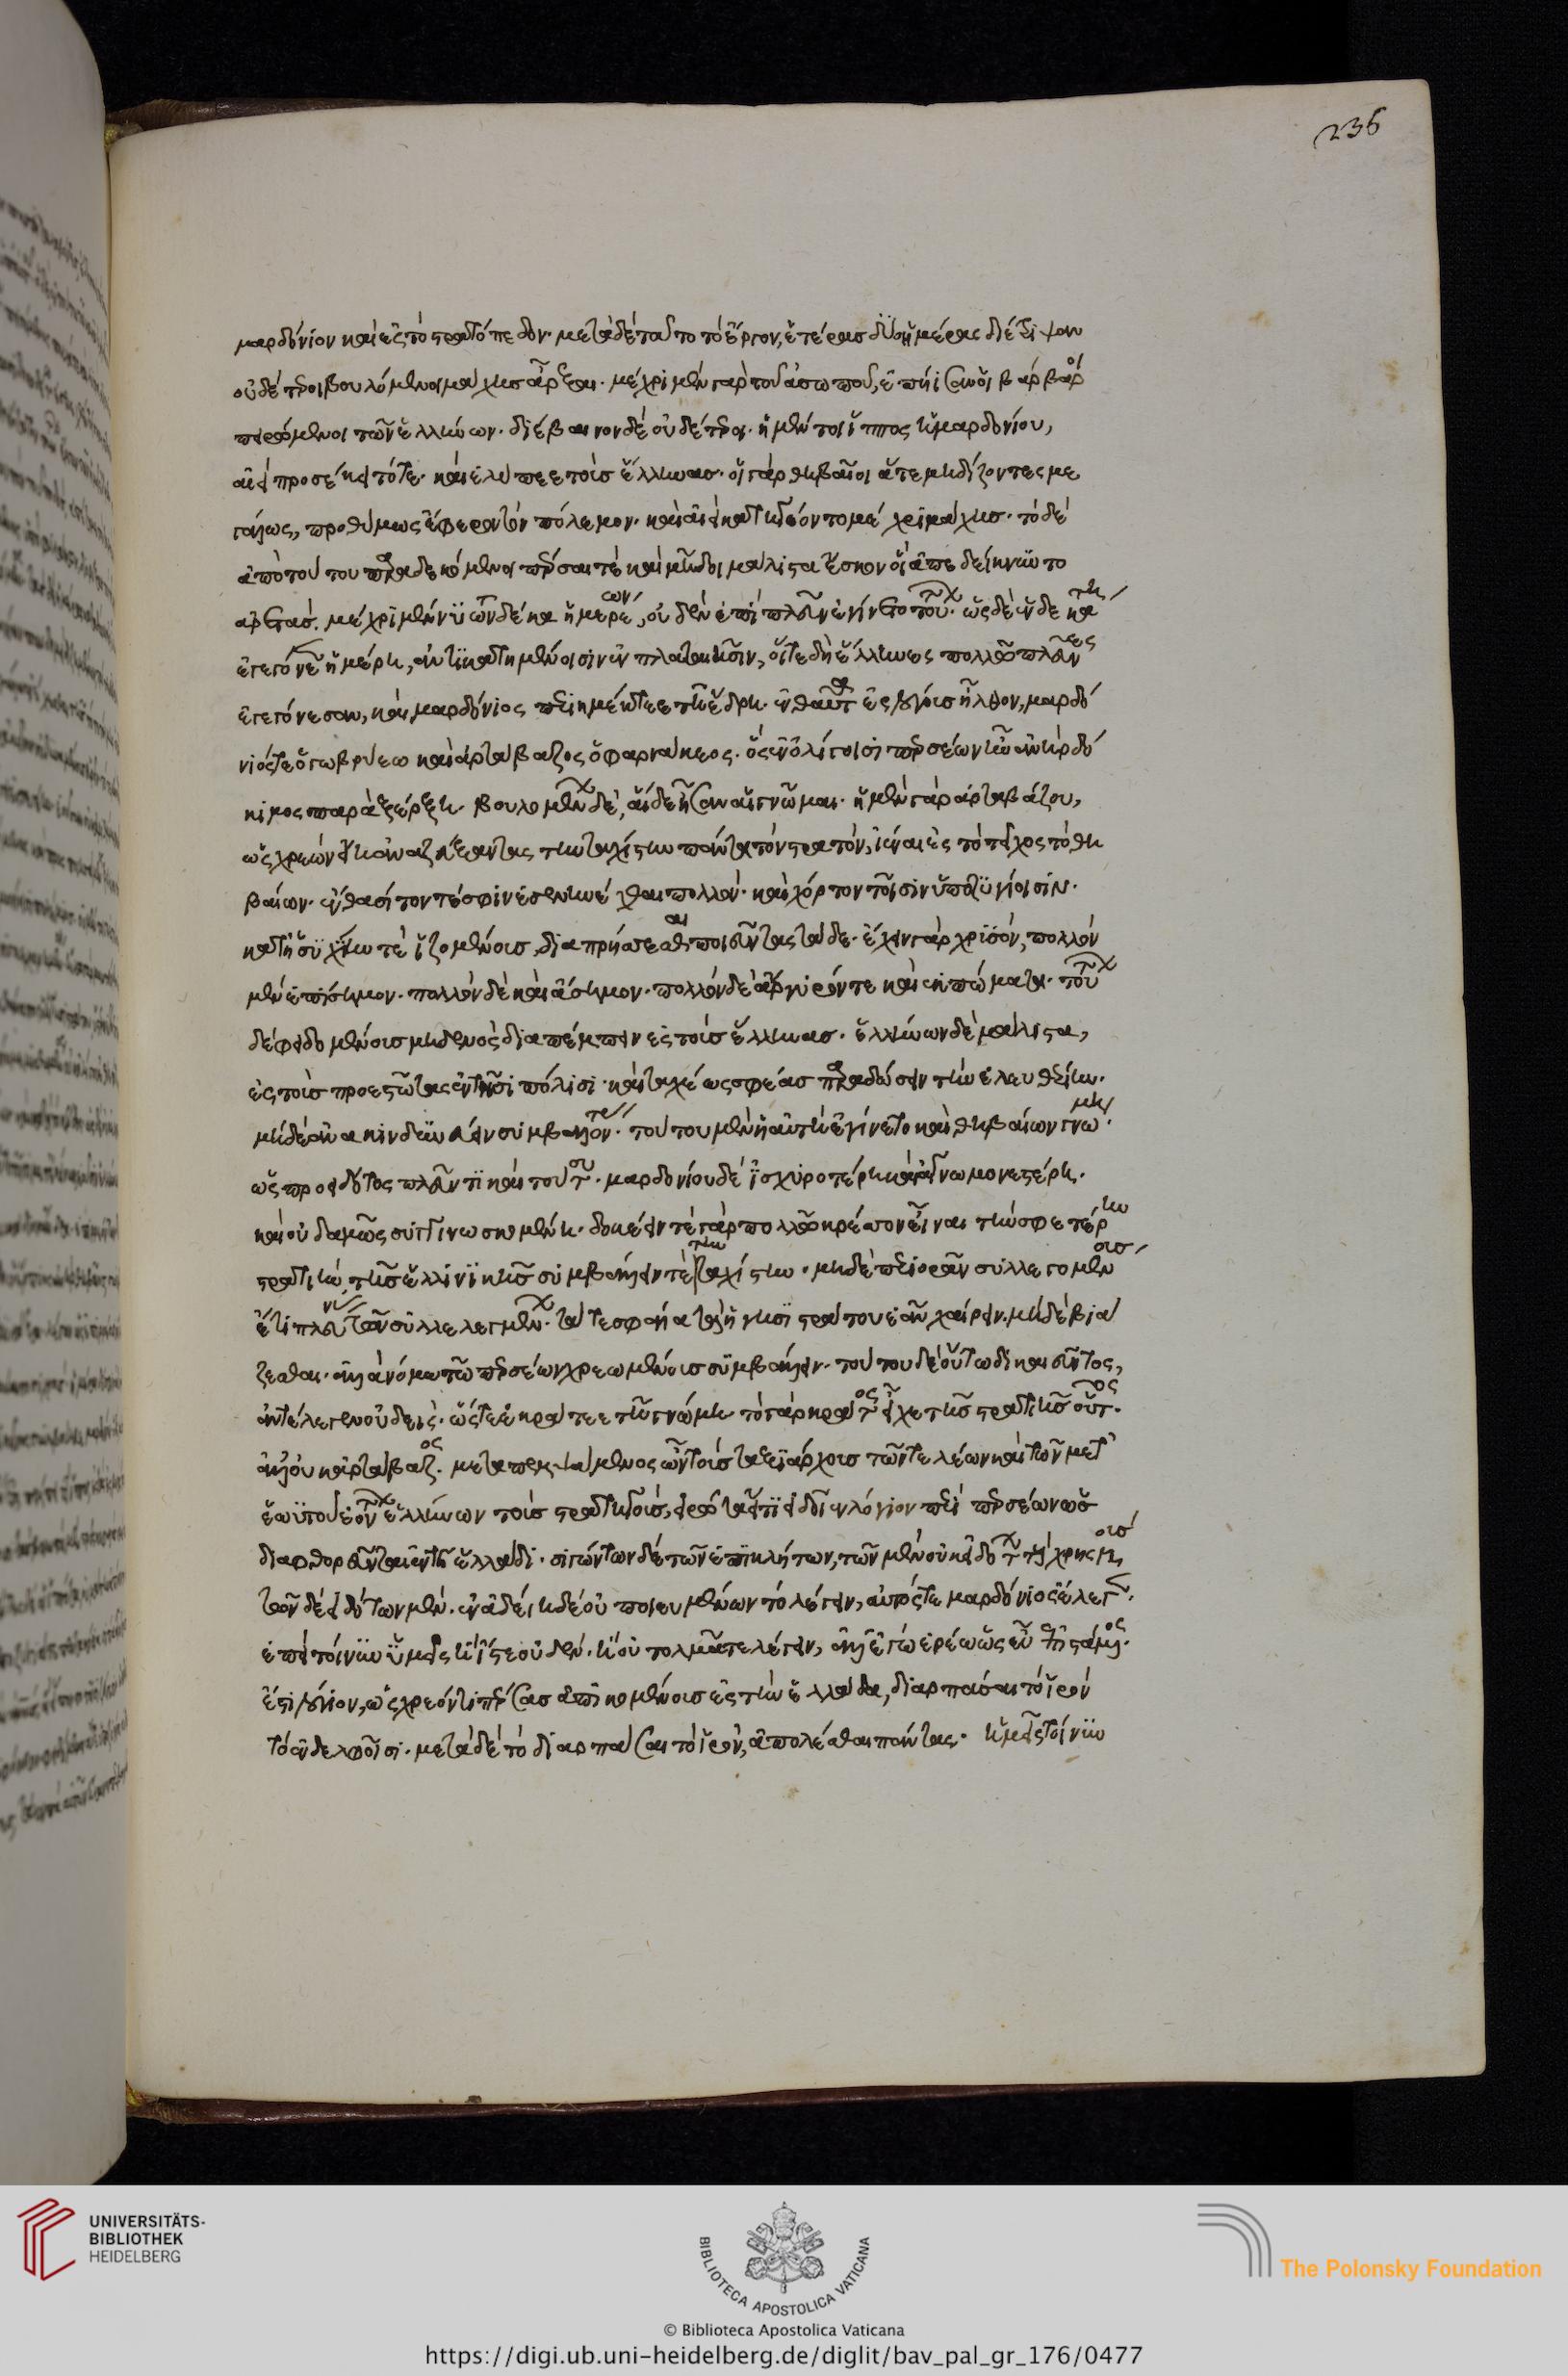 μαρδόνιον καὶ ἐς τὸ στρατόπεδον. μετὰ δὲ ταῦτο τὸ ἔργον, ἑτέρας δύο ἡμέρας διέτριψαν
οὐδέτεροι βουλόμενοι μάχης ἄρξαι. μέχρι μὲν γὰρ τοῦ ἀσωποῦ, ἐπήισαν οἱ βάρβαροι
πειρόμενοι τῶν ἑλλήνων. διέβαινον δὲ οὐδέτεροι. ἡ μέντοι ἵππος ἡ μαρδονίου,
αἰεὶ προσέκειτό τε. καὶ ἐλύπεε τοὺς ἕλληνας. οἱ γὰρ θηβαῖοι ἅτε μηδίζοντες με
γάλως, προθύμως ἔφερον τὸν πόλεμον. καὶ αἰεὶ κατηγέοντο μέχρι μάχης. τὸ δὲ
ἀπὸ τούτου παραδεκόμενοι πέρσαι τὲ καὶ μῆδοι μάλιστα ἔσκον οἳ ἀπεδείκνυντο
ἀρετάς. μέχρι μὲν νῦν τῶν δέκα ἡμερέων, οὐδὲν ἐπὶ πλεῦν ἐγίνετο τούτων. ὡς δὲ ἑνδεκάτη
ἐγεγόνεε ἡμέρη, ἀντικατημένοισιν ἐν πλαταιῇσιν, οἵ τε δὴ ἕλληνες πολλῶ πλεῦνες
ἐγεγόνεσαν, καὶ μαρδόνιος περιημέκτεε τῆ ἕδρη. ἐνθαῦτα ἐς λόγους ἦλθον, μαρδό
νιός τε ὁ γωβρύεω καὶ ἀρτάβαζος ὁ φαρνάκεος. ὃς ἐν ὀλίγοισι περσέων ἦν ἀνὴρ δό
κιμος παρὰ ξέρξη. βουλομένων δὲ, αἵδε ἦσαν αἱ γνῶμαι. ἡ μὲν γὰρ ἀρταβάζου,
ὡς χρεὼν εἴη ἀναζεύξαντας τὴν ταχίστην πάντα τὸν στρατόν, ἰέναι ἐς τὸ τεῖχος τὸ θη
βαίων. ἔνθα σῖτόν τέ σφιν ἐσενηνέχθαι πολλὸν. καὶ χόρτον τοῖσιν ὑποζυγίοισιν.
κατ' ἡσυχίην τὲ ἱζομένους, διαπρήσσεσθαι ποιεῦντας τάδε. ἔχειν γὰρ χρυσόν, πολλὸν
μὲν ἐπίσημον. πολλὸν δὲ καὶ ἄσημον. πολλὸν δὲ ἄργυρόν τε καὶ ἐκπώματα. τούτων
δὲ φειδομένους μηδενὸς διαπέμπειν ἐς τοὺς ἕλληνας. ἑλλήνων δὲ μάλιστα,
ἐς τοὺς προεστῶτας ἐν τῆσι πόλισι. καὶ ταχέως σφέας παραδώσειν τὴν ἐλευθερίην.
μηδὲ ἀνακινδυνεύειν συμβάλλοντες. τούτου μὲν ἡ αὐτὴ ἐγίνετο καὶ θηβαίων γνώμη.
ὡς προειδότος πλεῦν τι καὶ τούτου. μαρδονίου δὲ ἰσχυροτέρη καὶ ἀγνωμονεστέρη.
καὶ οὐδαμῶς συγγινωσκομένη. δοκέειν τὲ γὰρ πολλῶ κρέσσονα εἶναι τὴν σφετέρην
στρατιὴν τῆς ἑλληνικῆς συμβάλλειν τὲ τὴν ταχίστην. μηδὲ περιορᾶν συλλεγομένους
ἔτι πλεῦνας τῶν συλλελεγμένων. τά τε σφάγια τὰ ἡγησιστράτου ἐᾶν χαίρειν. μηδὲ βιά
ζεσθαι. ἀλλὰ νόμω τῶ περσέων χρεωμένους συμβάλλειν. τούτου δὲ οὕτω δικαιεῦντος,
ἀντέλεγεν οὐδείς. ὥστε ἐκράτεε τῆ γνώμη. τὸ γὰρ κράτος εἶχε τῆς στρατιῆς οὗτος.
ἀλλ' οὐκ ἀρτάβαζος. μεταπεμψάμενος ὦν τοὺς ταξιάρχους τῶν τελέων καὶ τῶν μετ'
ἑωυτοῦ ἐόντων ἑλλήνων τοὺς στρατηγοὺς, εἰρώτα εἴ τι εἰδεῖεν λόγιον περὶ περσέων ὡς
διαφθορεῦνται ἐν τῆ ἑλλάδι. σιγώντων δὲ τῶν ἐπικλήτων, τῶν μὲν οὐκ εἰδότων τοὺς χρησμούς,
τῶν δὲ εἰδότων μὲν. ἐν ἀδείη δὲ οὐ ποιευμένων τὸ λέγειν, αὐτός τε μαρδόνιος ἔλεγε.
ἐπεὶ τοίνυν ὑμεῖς ἢ ἴστε οὐδὲν. ἢ οὐ τολμᾶτε λέγειν, ἀλλ' ἐγὼ ἐρέω ὡς εὖ ἐπιστάμενος.
ἔστι λόγιον, ὡς χρεόν ἐστι πέρσας ἀπικομένους ἐς τὴν ἑλλάδα, διαρπάσαι τὸ ἱρὸν
τὸ ἐν δελφοῖσι. μετὰ δὲ τὸ διαρπάσαι τὸ ἱρὸν, ἀπολέσθαι πάντας. ἡμεῖς τοίνυν
236
UNIVERSITÄTS-
BIBLIOTHEK
HEIDELBERG
BIBLIOTECA APOSTOLICA VATICANA
The Polonsky Foundation
© Biblioteca Apostolica Vaticana
https://digi.ub.uni-heidelberg.de/diglit/bav_pal_gr_176/0477